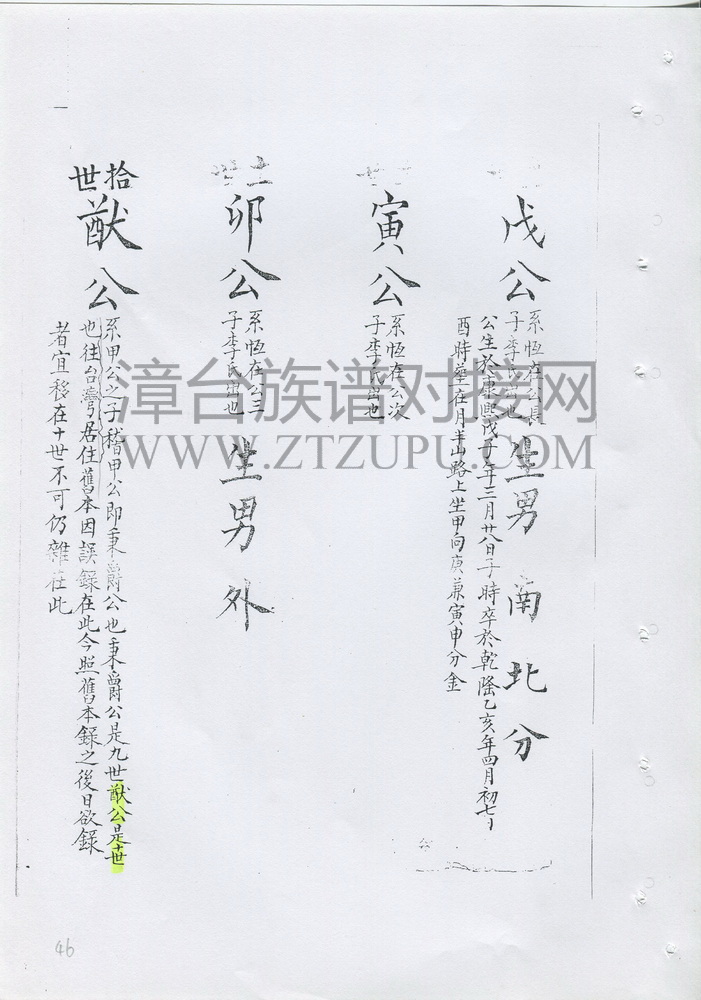 戊公
系恆在公長
子李氏出也
生男 南 北 分
公生於康熙戊子年三月廿八日子時卒於乾隆乙亥年四月初七日
酉時葬在月半山路上坐甲向庚兼寅申分金
寅公
系恆在公次
子李氏出也
卯公
系恆在公三
子李氏出也
生男 外
拾
世
猷公
系甲公之子稽甲公即秉爵公也秉爵公是九世猷公是十世
也往台灣居住舊本因誤錄在此今照舊本錄之後日欲錄
者宜移在十世不可仍雜在此
漳台族谱对接网
WWW.ZTZUPU.COM
46